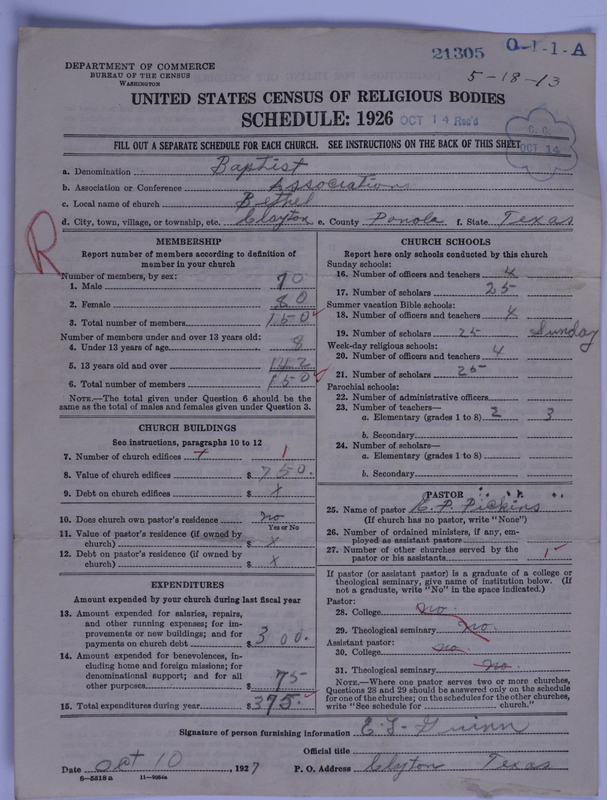 21305 O-1-1-A
5-18-13
DEPARTMENT OF COMMERCE
BUREAU OF THE CENSUS
WASHINGTON
UNITED STATES CENSUS OF RELIGIOUS BODIES
SCHEDULE: 1926 OCT 14 Rec'd
C. C. OCT 14
FILL OUT A SEPARATE SCHEDULE FOR EACH CHURCH. SEE INSTRUCTIONS ON THE BACK OF THIS SHEET
a. Denomination Baptist
b. Association or Conference Association
c. Local name of church Bethel
d. City, town, village, or township, etc. Clayton e. County Panola f. State Texas
R
MEMBERSHIP
Report number of members according to definition of
member in your church
Number of members, by sex:
1. Male 70
2. Female 80
3. Total number of members 150
Number of members under and over 13 years old:
4. Under 13 years of age 8
5. 13 years old and over 142
6. Total number of members 150
NOTE.—The total given under Question 6 should be the
same as the total of males and females given under Question 3.
CHURCH BUILDINGS
See instructions, paragraphs 10 to 12
7. Number of church edifices 1
8. Value of church edifices $ 750.
9. Debt on church edifices $ x
10. Does church own pastor's residence no
Yes or No
11. Value of pastor's residence (if owned by
church) $ x
12. Debt on pastor's residence (if owned by
church) $ x
EXPENDITURES
Amount expended by your church during last fiscal year
13. Amount expended for salaries, repairs,
and other running expenses; for im-
provements or new buildings; and for
payments on church debt $ 300.
14. Amount expended for benevolences, in-
cluding home and foreign missions; for
denominational support; and for all
other purposes $ 75
15. Total expenditures during year $ 375.
CHURCH SCHOOLS
Report here only schools conducted by this church
Sunday schools:
16. Number of officers and teachers 4
17. Number of scholars 25
Summer vacation Bible schools:
18. Number of officers and teachers 4
19. Number of scholars 25 Sunday
Week-day religious schools:
20. Number of officers and teachers 4
21. Number of scholars 25
Parochial schools:
22. Number of administrative officers
23. Number of teachers—
a. Elementary (grades 1 to 8) 2 3
b. Secondary
24. Number of scholars—
a. Elementary (grades 1 to 8)
b. Secondary
PASTOR
25. Name of pastor E. P. Pickins
(If church has no pastor, write "None")
26. Number of ordained ministers, if any, em-
ployed as assistant pastors
27. Number of other churches served by the
pastor or his assistants 1
If pastor (or assistant pastor) is a graduate of a college or
theological seminary, give name of institution below. (If
not a graduate, write "No" in the space indicated.)
Pastor:
28. College no.
29. Theological seminary no.
Assistant pastor:
30. College no
31. Theological seminary no.
NOTE.—Where one pastor serves two or more churches,
Questions 28 and 29 should be answered only on the schedule
for one of the churches; on the schedules for the other churches,
write "See schedule for church."
Signature of person furnishing information E. J. Guinn
Official title
Date Oct 10 1927 P. O. Address Clayton Texas
8-5818a 11-9064a